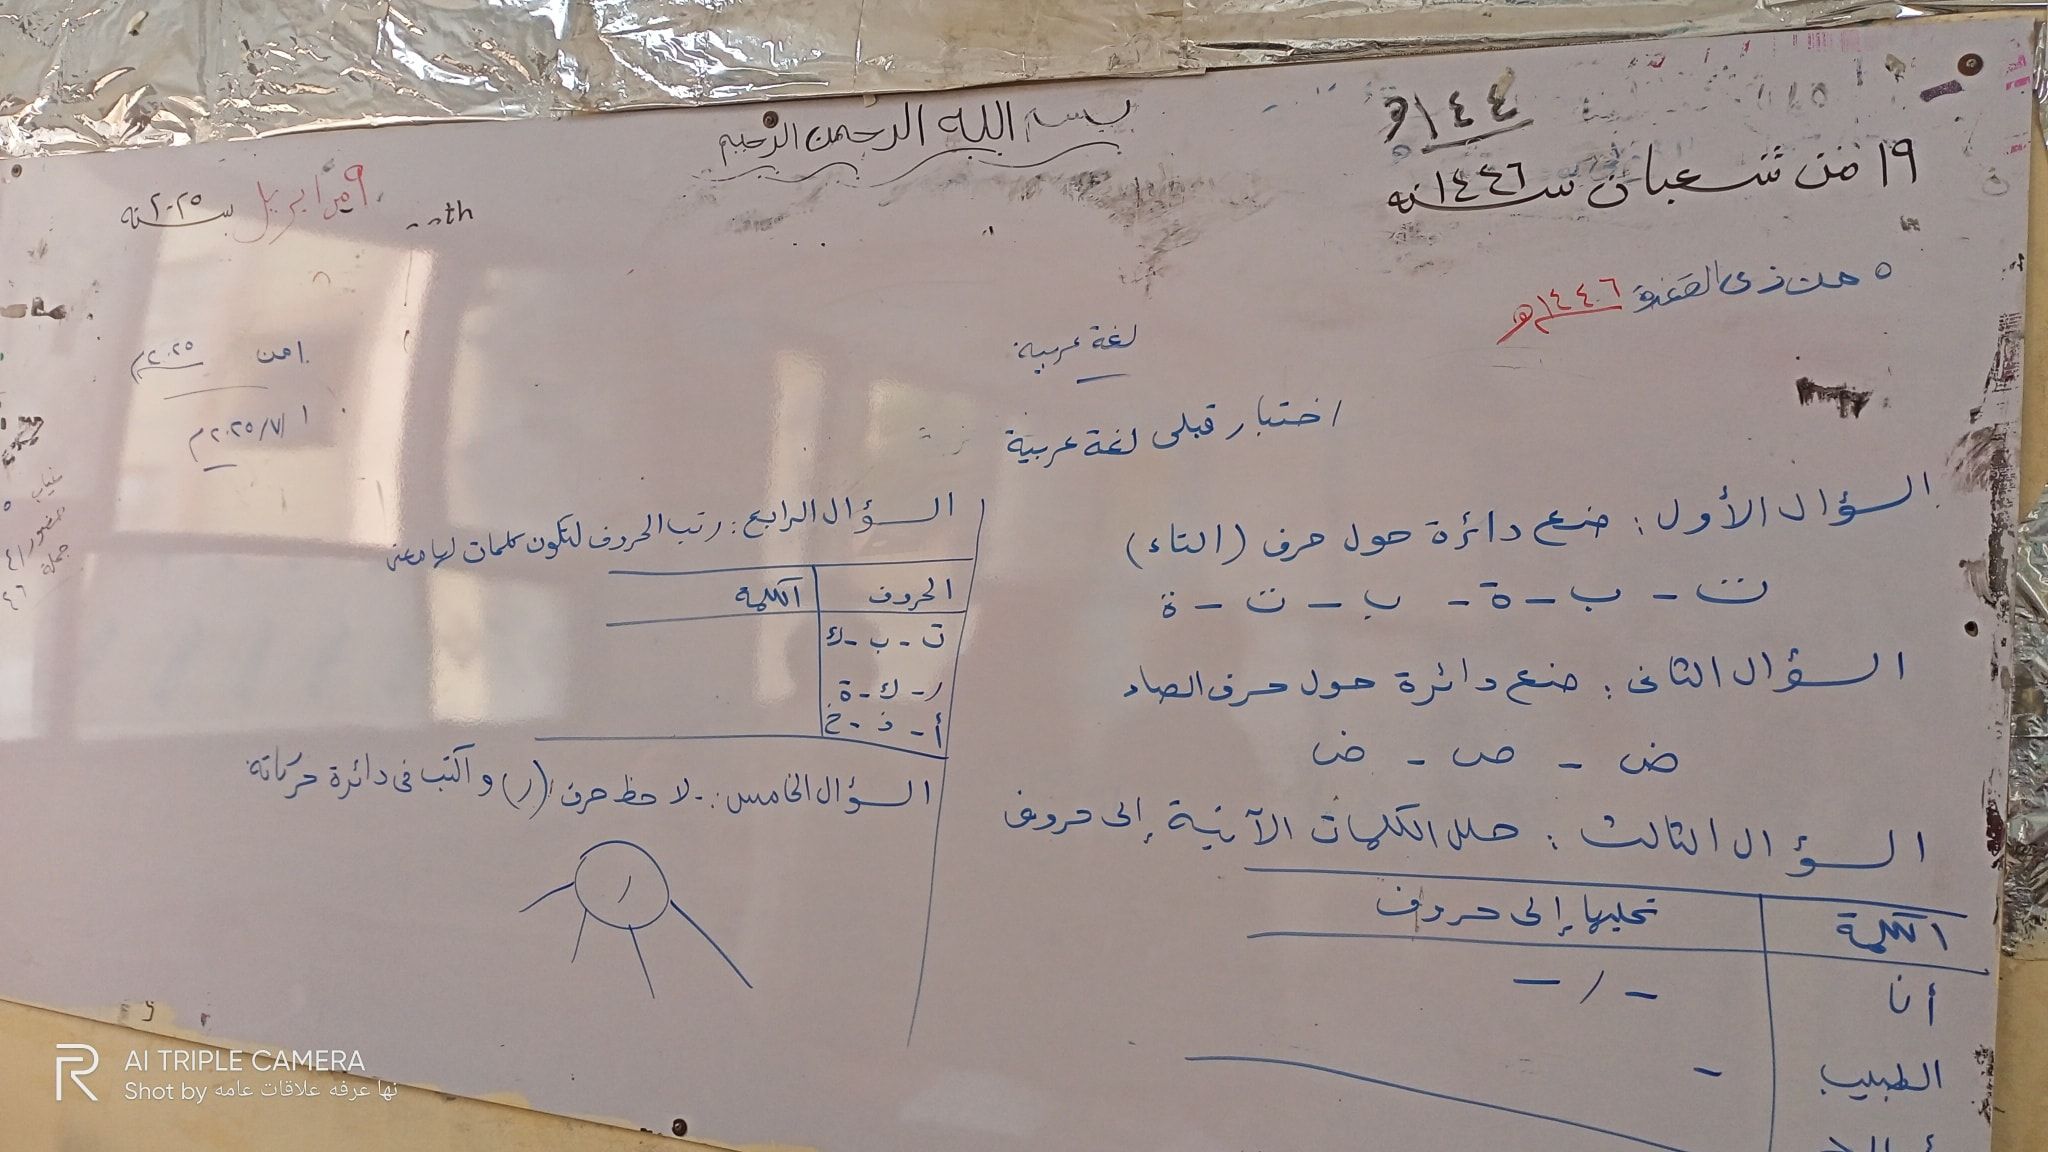 بسم الله الرحمن الرحيم
١٤٤
١٩ من شعبان سنه ١٤٤٦
٩ من ابريل سنه ٢٠٢٥
th
٥ من ذى القعدة ١٤٤٦ هـ
من ٢٠٢٥ م
١/٧/٢٠٢٥ م
غياب ٥
حضور ٤١
جملة ٤٦
لغة عربية
اختبار قبلى لغة عربية
السؤال الأول: ضع دائرة حول حرف (التاء)
ت - ب - ة - ب - ت - ة
السؤال الثانى: ضع دائرة حول حرف الصاد
ض - ص - ض
السؤال الثالث: حلل الكلمات الآتية إلى حروف
الكلمة تحليلها إلى حروف
أنا - / -
الطبيب -
السؤال الرابع: رتب الحروف لتكون كلمات لها معنى
الحروف الكلمة
ت - ب - ك
ر - ك - ة
أ - ذ - خ
السؤال الخامس:- لاحظ حرف (ر) و اكتب فى دائرة حركاته
ر
AI TRIPLE CAMERA
Shot by نها عرفه علاقات عامه